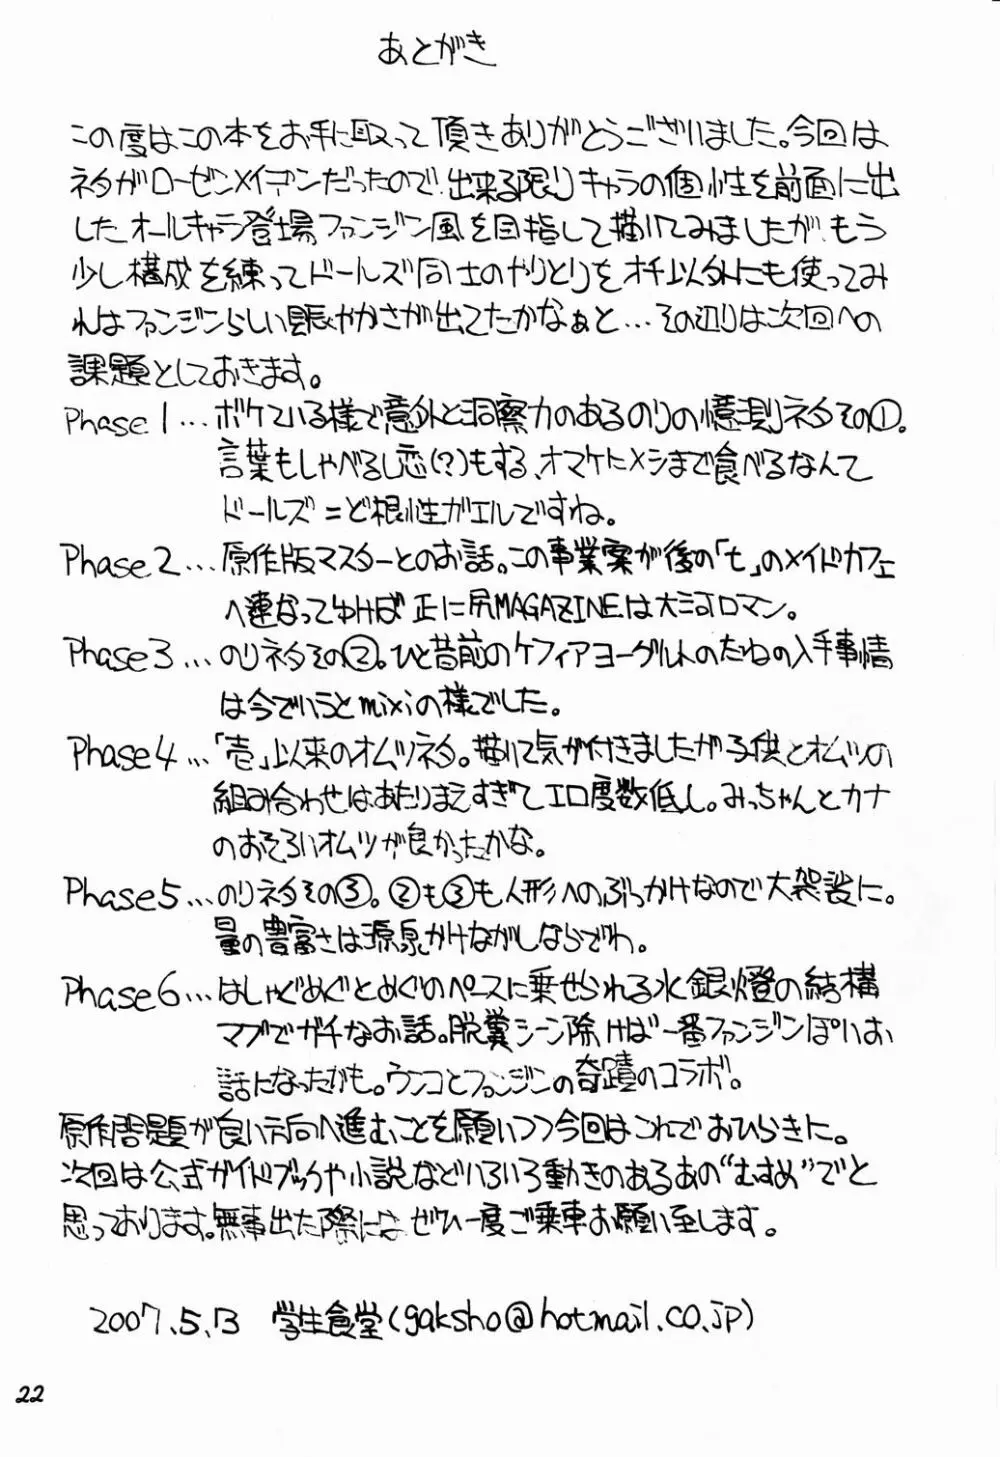 あとがき
この度はこの本をお手に取って頂きありがとうございました。今回は
ネタがローゼンメイデンだったので、出来る限りキャラの個性を前面に出
したオールキャラ登場ファンジン風を目指して描いてみましたが、もう
少し構成を練ってドールズ同士のやりとりをオチ以外にも使ってみ
ればファンジンらしい賑やかさが出てたかなぁと…その辺りは次回への
課題としておきます。
Phase.1…ボケている様で意外と洞察力のあるのりの憶測ネタその①。
言葉もしゃべるし恋(?)もする、オマケにメシまで食べるなんて
ドールズ=ど根性ガエルですね。
Phase.2…原作版マスターとのお話。この事業案が後の「t」のメイドカフェ
へ連なってゆけば正に尻MAGAZINEは大河ロマン。
Phase3…のりネタその②。ひと昔前のケフィアヨーグルトのたねの入手事情
は今でいうとmixiの様でした。
Phase4…「壱」以来のオムツネタ。描いて気が付きましたが子供とオムツの
組み合わせはあたりまえすぎてエロ度数低し。みっちゃんとカナ
のおそろいオムツが良かったかな。
Phase5…のりネタその③。②も③も人形へのぶっかけなので大袈裟に。
量の豊富さは源泉かけながしならでわ。
Phase6…はしゃぐめぐとめぐのペースに乗せられる水銀燈の結構
マブでガチなお話。脱糞シーン除けば一番ファンジンぽいお
話になったかも。ウンコとファンジンの奇蹟のコラボ。
原作問題が良い方向へ進むことを願いつつ今回はこれでおひらきに。
次回は公式ガイドブックや小説などいろいろ動きのあるあの“むすめ”でと
思っております。無事出た際にはぜひ一度ご乗車お願い至します。
2007.5.13 学生食堂(gaksho@hotmail.co.jp)
22